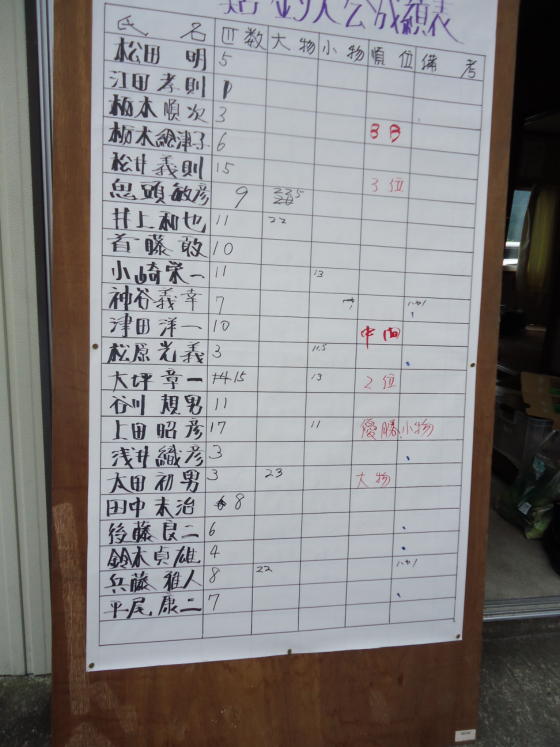 釣大会成績表
氏 名 匹数 大物 小物 順位 備考
松田 明 5
江田孝則 1
栃木順次 3
栃木絵津子 6 BB
松井義則 15 3位
鬼頭敏彦 9
井上和也 11 22
首藤敢 10
小崎栄一 11 13
神谷義幸 7
津田洋一 10
松原光義 3 11.5
大坪章一 15 13 2位
谷川規男 11
上田昭彦 17 11 優勝 小物
浅井織彦 3
太田初男 3 23 大物
田中末治 8
後藤良二 6
鈴木貞雄 4
兵藤雅人 8 22
平尾康二 7